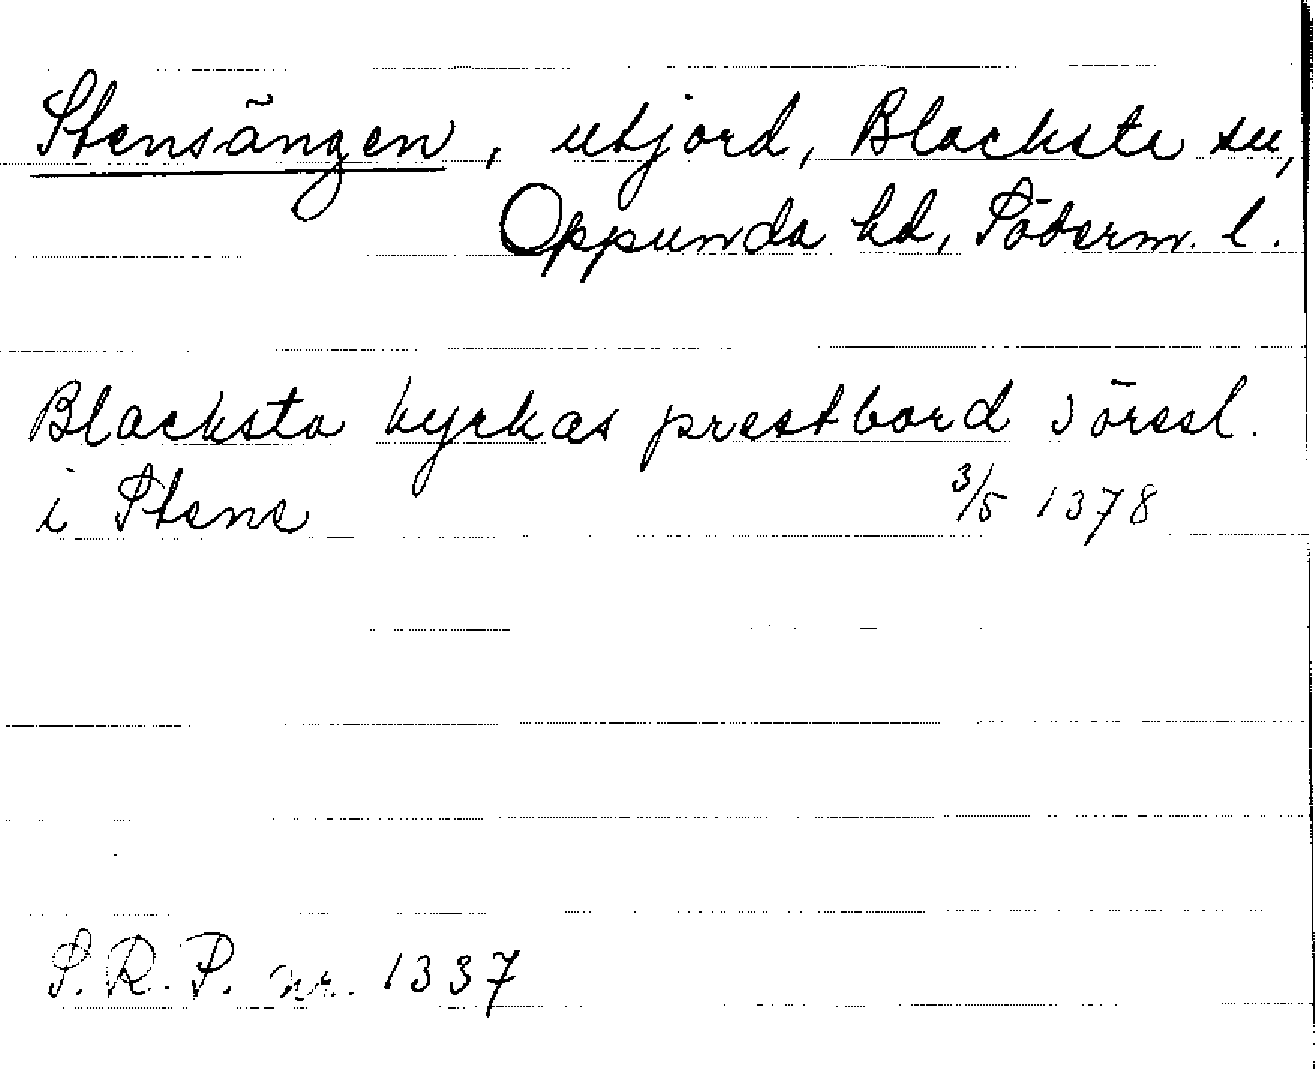 Stensängen, utjord, Blacksta sn,
Oppunda hd, Söderm. l.
Blacksta kyrkas prestbord i öresl.
i Stene 3/5 1378
S.R.P. nr. 1337